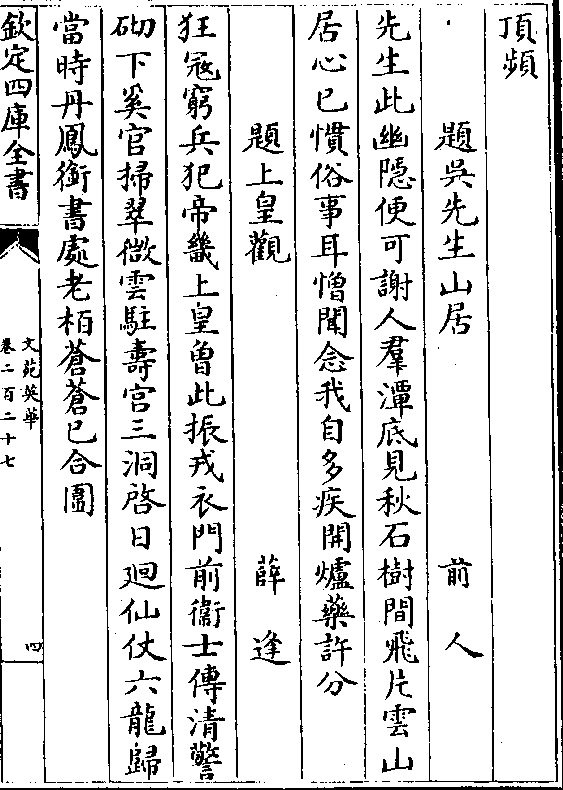 頂頻
題吳先生山居　前人
先生此幽隱便可謝人羣潭底見秋石樹間飛片雲山
居心已慣俗事耳憎聞念我自多疾開爐藥許分
題上皇觀　薛逢
狂冦窮兵犯帝畿上皇曽此振戎衣門前衞士傳清警
砌下奚官掃翠微雲駐壽宫三洞啓日廻仙仗六龍歸
當時丹鳳銜書處老栢蒼蒼已合圍
欽定四庫全書
文苑英華
卷二百二十七
四